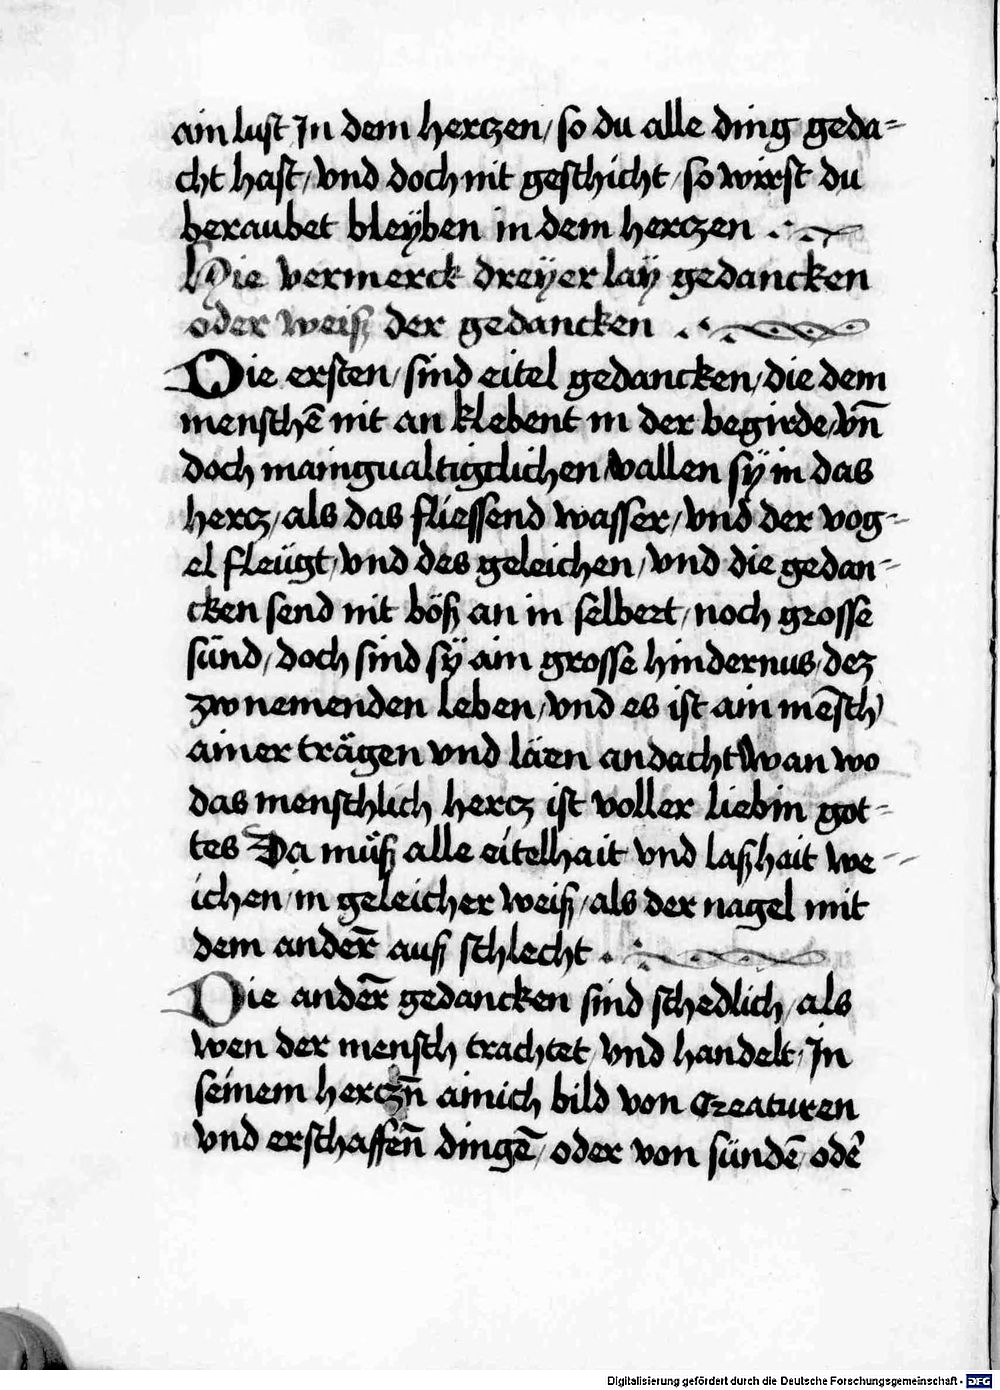 ain lust Jn dem herczen / so du alle ding geda=
cht hast / vnd doch nit geschicht / so wirst du
beraubet bleÿben in dem herczen .
Hie vermerck dreÿer laÿ gedancken
oder weiß der gedancken .
Die ersten / sind eitel gedancken / die dem
menschē nit an klebent in der begirde / vn̄
doch mainguałtigclichen wallen sÿ in das
hercz / als das fliessend wasser / vnd der vog=
el fleügt / vnd des geleichen / vnd die gedan=
cken send nit böß an in selbert / noch grosse
sünd / doch sind sÿ ain grosse hindernus / dez
zw nemenden leben / vnd es ist ain mēsch
ainer trägen vnd läen andacht Wan wo
das menschlich hercz ist voller lieb in got=
tes Da müß alle eitelhait vnd laßhait we=
ichen / in geleicher weiß / als der nagel mit
dem ander̄ auß schlecht .
Die ander̄ gedancken sind schedlich / als
wen der mensch trachtet / vnd handelt / Jn
seinem herczn̄ ainich bild von Creaturen
vnd erschaffen̄ dingē / oder von sündē odē
Digitalisierung gefördert durch die Deutsche Forschungsgemeinschaft - DFG